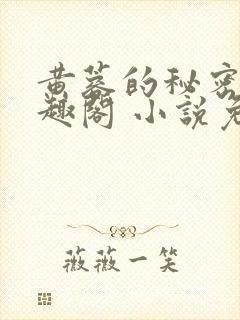 黄墓的秘密
趣阁 小説免
薇薇一笑